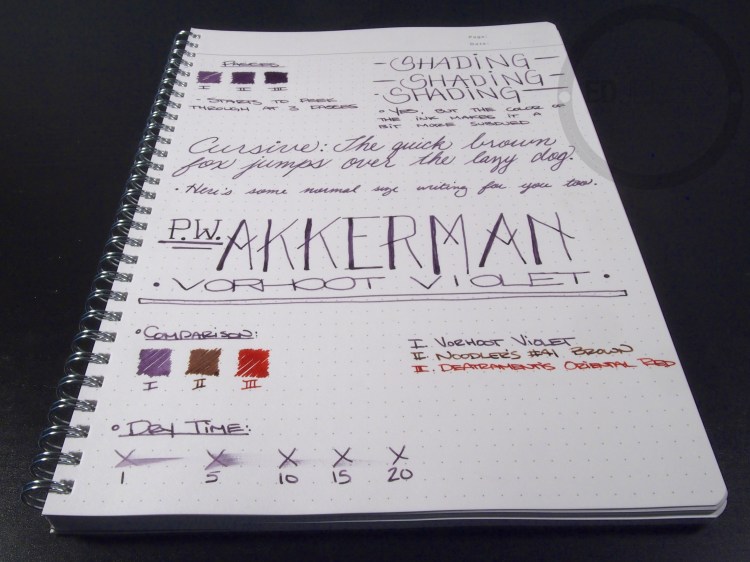 Page:
Date:
Passes
I II III
- Starts to peek
through at 3 passes
- SHADING -
- SHADING -
- SHADING -
• Yes, but the color of
the ink makes it a
bit more subdued
Cursive: The quick brown
fox jumps over the lazy dog.
• Here's some normal size writing for you too.
P.W. AKKERMAN
• VORHOOT VIOLET •
• Comparison:
I II III
I Vorhoot Violet
II Noodler's #41 Brown
III DeAtramentis Oriental Red
• Dry Time:
X X X X X
1 5 10 15 20